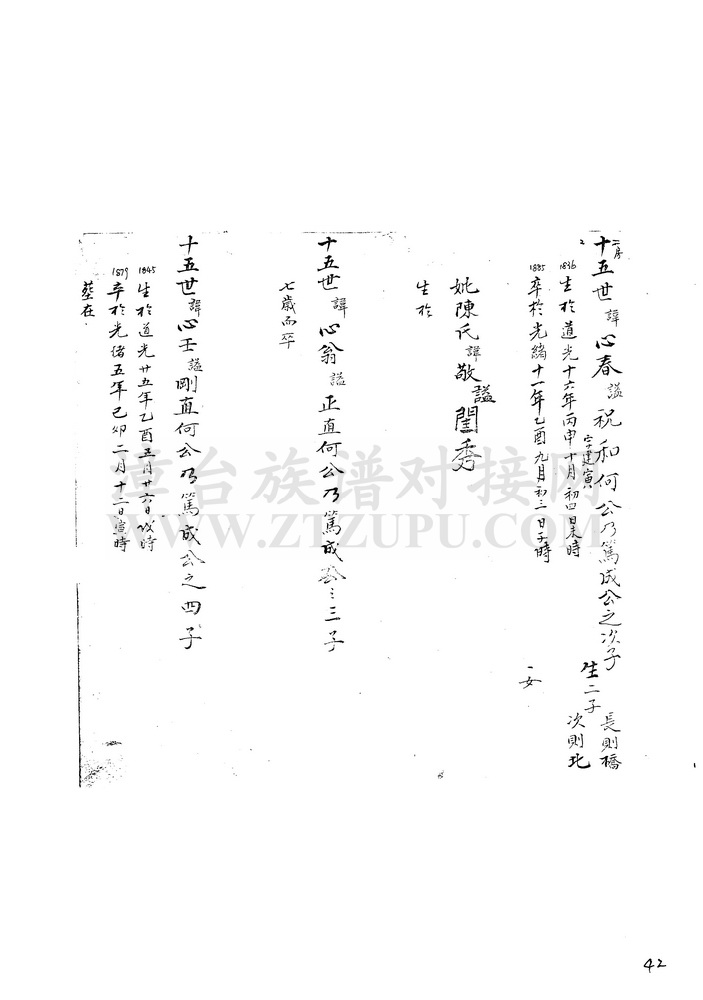 二房
2
十五世諱心春謚祝和何公乃篤成公之次子
字建寅
生二子
長則橋
次則北
1836
生於道光十六年丙申十月初四日未時
1885
卒於光緒十一年乙酉九月初三日子時
一女
妣陳氏諱敬謚閨秀
生於
十五世諱心翁謚正直何公乃篤成公之三子
七歲而卒
十五世諱心壬謚剛直何公乃篤成公之四子
1845
生於道光廿五年乙酉五月廿六日戌時
1879
卒於光緒五年己卯二月十二日寅時
塟在
漳台族谱对接网
WWW.ZTZUPU.COM
42